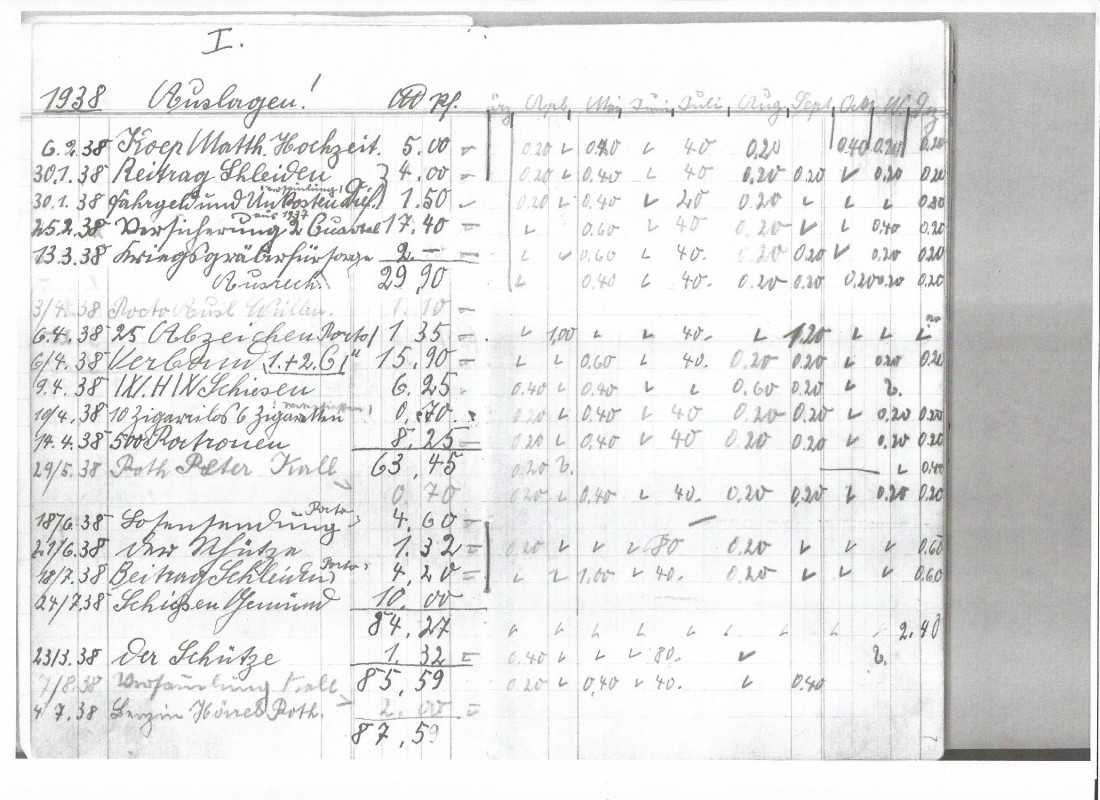 I.
1938 Auslagen! M pf. ärz Apb. Mai Juni Juli Aug. Sept Okt N. Dez
6.2.38 Koep Matth. Hochzeit. 5.00 = 0.20 ں 0.20 ں 40 0.20 0.40 0.20 0.20
30.1.38 Beitrag Schleiden 4.00 = 0.20 ں 0.40 ں 40 0.20 0.20 ں 0.20 0.20
30.1.38 Fahrgeld und Unkosten 1.50 0.20 ں 0.40 ں 20 0.20 ں ں ں 0.80
25.2.38 Versicherung aus 1937 2 Quartal 17.40 = ں 0.60 ں 40 0.20 ں ں 0.40 0.20
13.3.38 Kriegsgräberfürsorge 2.— = ں ں 0.60 ں 40. 0.20 0.20 ں 0.20 0.20
Ausrech. 29,90 ں 0.40 ں 40. 0.20 0.20 0.20 0.20 0.20
3/4.38 Porto 1.10 =
6.4.38 25 Abzeichen Porto 1.35 = ں 1,00 ں ں 40. ں 1,20 ں ں ں
6/4.38 Verband "1.+2.G" 15.90 = ں ں 0.60 ں 40. 0.20 0.20 ں 0.20 0.20
9.4.38 Schiesen 6.25 0.40 ں 0.40 ں ں 0.60 0.20 ں
10/4.38 10 Zigarrilos 6 Zigaretten 0.70. 0.20 ں 0.40 ں 40. 0.20 0.20 ں 0.20 0.20
14.4.38 500 Patronen 8.25 = 0.20 ں 0.40 ں 40 0.20 0.20 ں 0.20 0.20
29/5.38 Roth Peter Kall 63,45 0.20 ں 0.40
0.70 0.20 ں 0.40 ں 40. 0.20 0.20 ں 0.20 0.20
18/6.38 Losensendung Porto 4.60 =
21/6.38 Der Schütze 1.32 = 0.20 ں ں ں 80 0.20 ں ں ں 0.60
18/7.38 Beitrag Schleiden Porto 4.20 = ں ں 1.00 ں 40. 0.20 ں ں ں 0.60
24/7.38 Schiesen Gemünd 10.00
84.27 ں ں ں ں ں ں ں ں ں 2.40
23/3.38 Der Schütze 1.32 = 0.40 ں ں ں 80. ں
7/8.38 Versamlung Kall 85,59 0.20 ں 0,40 ں 40. ں 0.40
4 7.38 Benzin Roth. 2.00 =
87,59